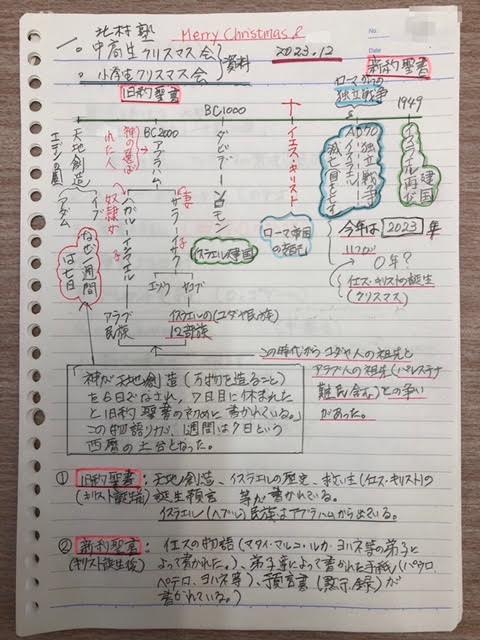 北村塾
Merry Christmas &
一。中高生クリスマス会
。小学生クリスマス会
資料
2023.12
No.
Date
新約聖書
旧約聖書
ローマからの独立戦争
BC1000
1949
天地創造
エデンの園
アダム
イブ
神の選ばれた人
BC2000
アブラハム
ダビデーソロモン
イエス・キリスト
イスラエル再び建国
妻
サラーイサク
奴隷女
ハガルーイシマエル
子
エソウ
ヤコブ
イスラエル王国
ローマ帝国の支配
今年は2023年
0年?
イエス・キリストの誕生
(クリスマス)
なぜ一週間は七日
アラブ民族
イスラエルの(ユダヤ民族)
12部族
この時代からユダヤ人の祖先と
アラブ人の祖先(パレスチナ
難民含む)との争い
があった。
「神が天地創造(万物を造ること)
を6日でなされ、7日目に休まれた
と旧約聖書の初めに書かれている。」
この物語りが、1週間は7日という
西暦の土台となった。
① 旧約聖書:天地創造、イスラエルの歴史、救い主(イエス・キリスト)の
(キリスト誕生前) 誕生預言 等が書かれている。
イスラエル(ヘブル)民族はアブラハムから出ている。
② 新約聖書:イエスの物語(マタイ・マルコ・ルカ・ヨハネ等の弟子に
(キリスト誕生後) よって書かれた。)、弟子等によって書かれた手紙(パウロ、
ペテロ、ヨハネ等)、預言書(黙示録)が
書かれている。)